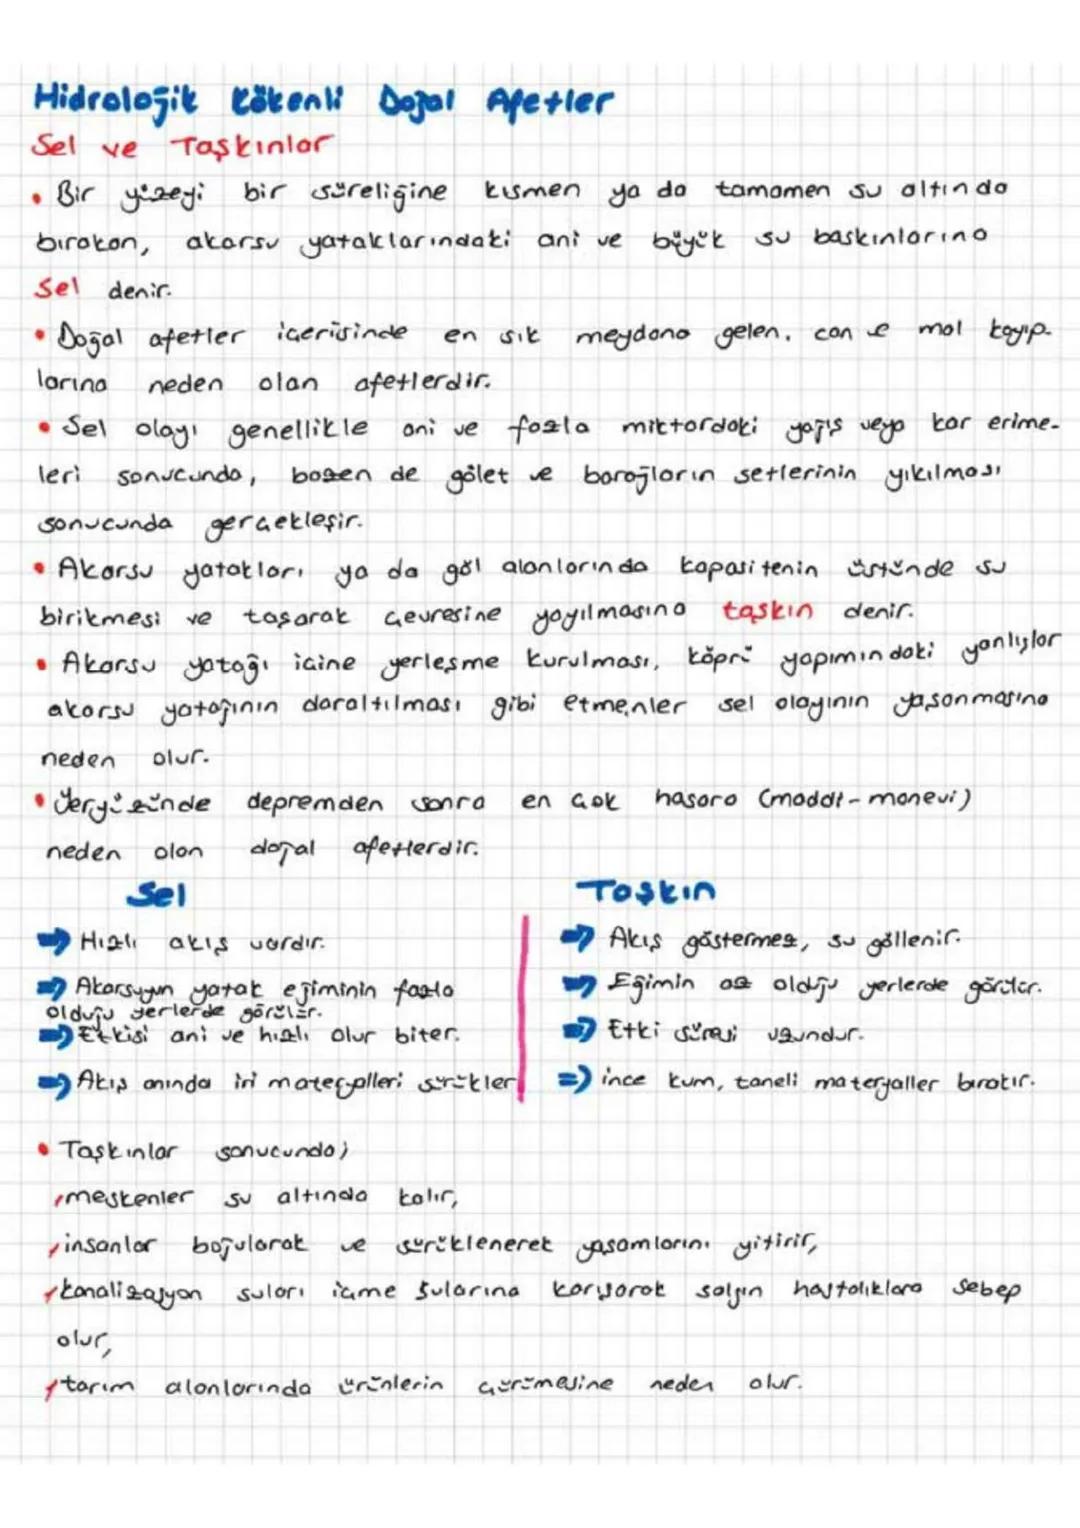 Hidrolojik Kökenli Doğal Afetler
Sel ve Taşkınlar
• Bir yüzeyi bir süreliğine kısmen ya da tamamen su altında
bırakan, akarsu yataklarındaki ani ve büyük su baskınlarına
Sel denir.
• Doğal afetler içerisinde en sık meydana gelen, can ve mal kayıp-
larına neden olan afetlerdir.
• Sel olayı genellikle ani ve fazla miktardaki yağış veya kar erime-
leri sonucunda, bazen de gölet ve barajların setlerinin yıkılması
sonucunda gerçekleşir.
• Akarsu yatakları ya da göl alanlarında kapasitenin üstünde su
birikmesi ve taşarak çevresine yayılmasına taşkın denir.
• Akarsu yatağı içine yerleşme kurulması, köprü yapımındaki yanlışlar
akarsu yatağının daraltılması gibi etmenler sel olayının yaşanmasına
neden olur.
• Yeryüzünde depremden sonra en çok hasara (maddi-manevi)
neden olan doğal afetlerdir.
Sel
⇒ Hızlı akış vardır.
⇒ Akarsuyun yatak eğiminin fazla
olduğu yerlerde görülür.
⇒ Etkisi ani ve hızlı olur biter.
⇒ Akış anında iri materyalleri sürükler
Taşkın
⇒ Akış göstermez, su göllenir.
⇒ Eğimin az olduğu yerlerde görülür.
⇒ Etki süresi uzundur.
⇒ ince kum, taneli materyaller bırakır.
• Taşkınlar sonucunda;
, meskenler su altında kalır,
, insanlar boğularak ve sürüklenerek yaşamlarını yitirir,
, kanalizasyon suları içme sularına karışarak salgın hastalıklara sebep
olur,
, tarım alanlarında ürünlerin çürümesine neden olur.